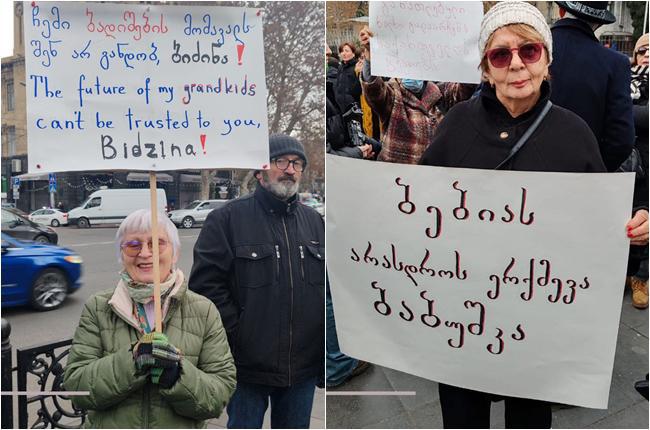 ჩემი ბადიშების მომავალს
შენ არ განდობ, ბიძინა!
The future of my grandkids
can't be trusted to you,
Bidzina!
ბებიას
არასდროს ერქმევა
ბაბუშკა